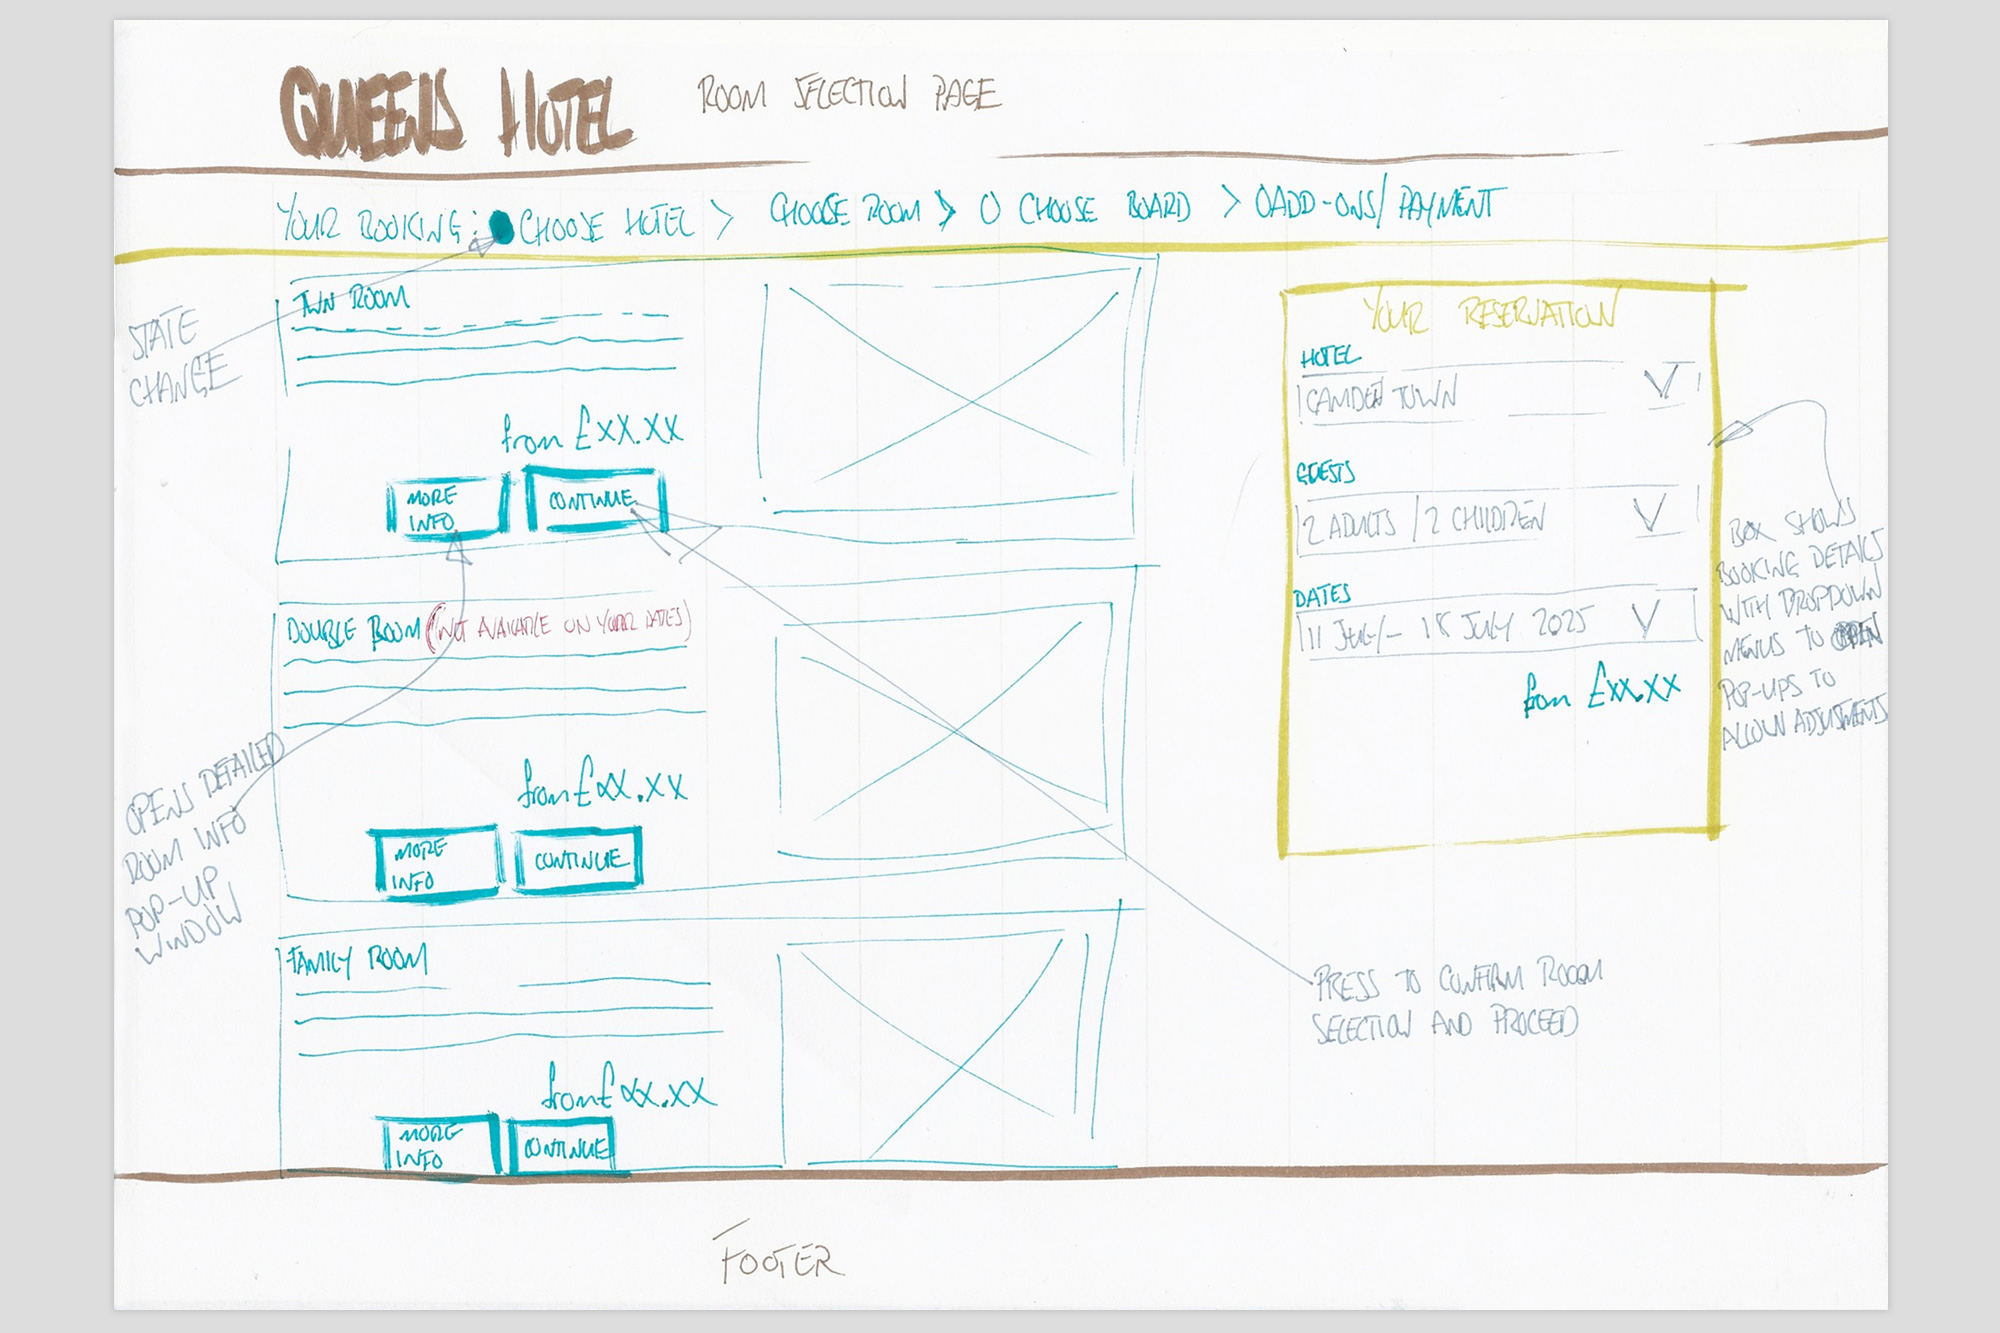 QUEENS HOTEL
ROOM SELECTION PAGE
YOUR BOOKING: CHOOSE HOTEL > CHOOSE ROOM > O CHOOSE BOARD > O ADD-ONS/PAYMENT
STATE
CHANGE
TWN ROOM
from £XX.XX
MORE
INFO
CONTINUE
DOUBLE ROOM (NOT AVAILABLE ON YOUR DATES)
from £XX.XX
MORE
INFO
CONTINUE
OPENS DETAILED
ROOM INFO
POP-UP
WINDOW
FAMILY ROOM
from £XX.XX
MORE
INFO
CONTINUE
YOUR RESERVATION
HOTEL
CAMDEN TOWN
GUESTS
2 ADULTS / 2 CHILDREN
DATES
11 JULY - 18 JULY 2025
from £XX.XX
BOX SHOWS
BOOKING DETAILS
WITH DROPDOWN
MENUS TO OPEN
POP-UPS TO
ALLOW ADJUSTMENTS
PRESS TO CONFIRM ROOM
SELECTION AND PROCEED
FOOTER